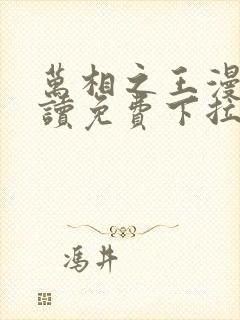 萬相之王漫
讀免費下拉
馮井